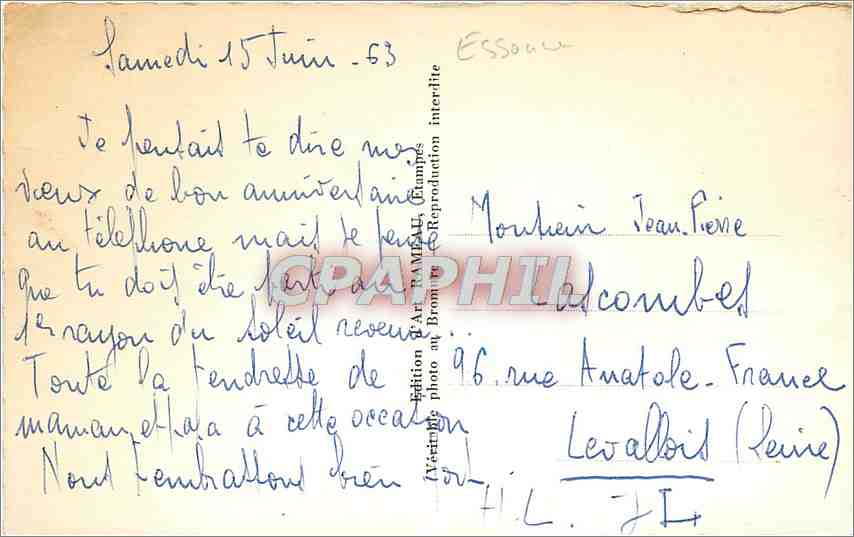 Samedi 15 Juin - 63
Je pensais te dire mes
vœux de bon anniversaire
au téléphone mais je pense
que tu dois être parti au
1er rayon du soleil revenu...
Toute la tendresse de
maman et papa à cette occasion
Nous t'embrassons bien fort...
H.L. JL
Essonne
Edition d'Art RAMEAU, Etampes
(Véritable photo au Bromure - Reproduction interdite
Monsieur Jean-Pierre
Lascombes
96, rue Anatole-France
Levallois (Seine)
CPAPHIL